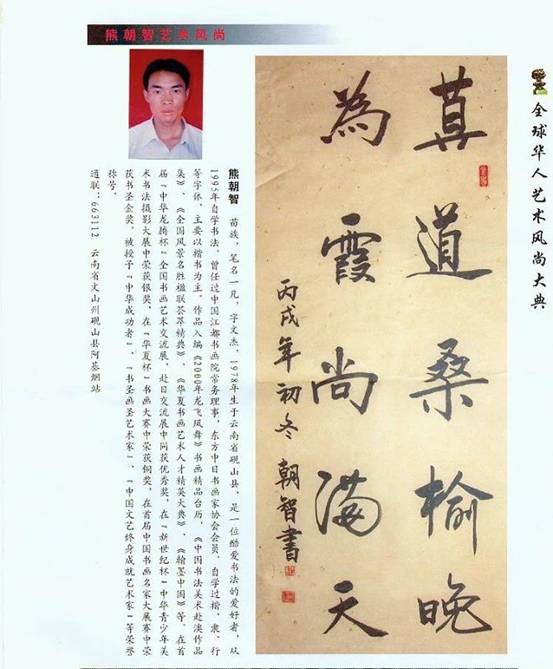 熊朝智艺术风尚
全球华人艺术风尚大典
莫道桑榆晚
為霞尚满天
丙戌年初冬 朝智書
熊朝智 苗族，笔名一凡，字文杰，1978年生于云南省砚山县，是一位酷爱书法的爱好者，从
1995年自学书法。曾任过中国江都书画院常务理事，东方中日书画家协会会员，自学过楷、隶、行
等字体，主要以楷书为主。作品入编《2000年龙飞凤舞》书画精品台历，《中国书法美术赴澳作品
集》、《全国风景名胜楹联荟萃精典》、《华夏书画艺术人才精英大典》、《翰墨中国》等。在首
届“中华龙腾杯”全国书画艺术交流展，赴日交流展中同获优秀奖，在“新世纪杯”中华青少年美
术书法摄影大展中荣获银奖，在“华夏杯”书画大赛中荣获铜奖，在首届中国书画名家大展赛中荣
获书圣金奖。被授予“中华成功者”、“书圣画圣艺术家”、“中国文艺终身成就艺术家”等荣誉
称号。
通联：663112 云南省文山州砚山县阿基烟站